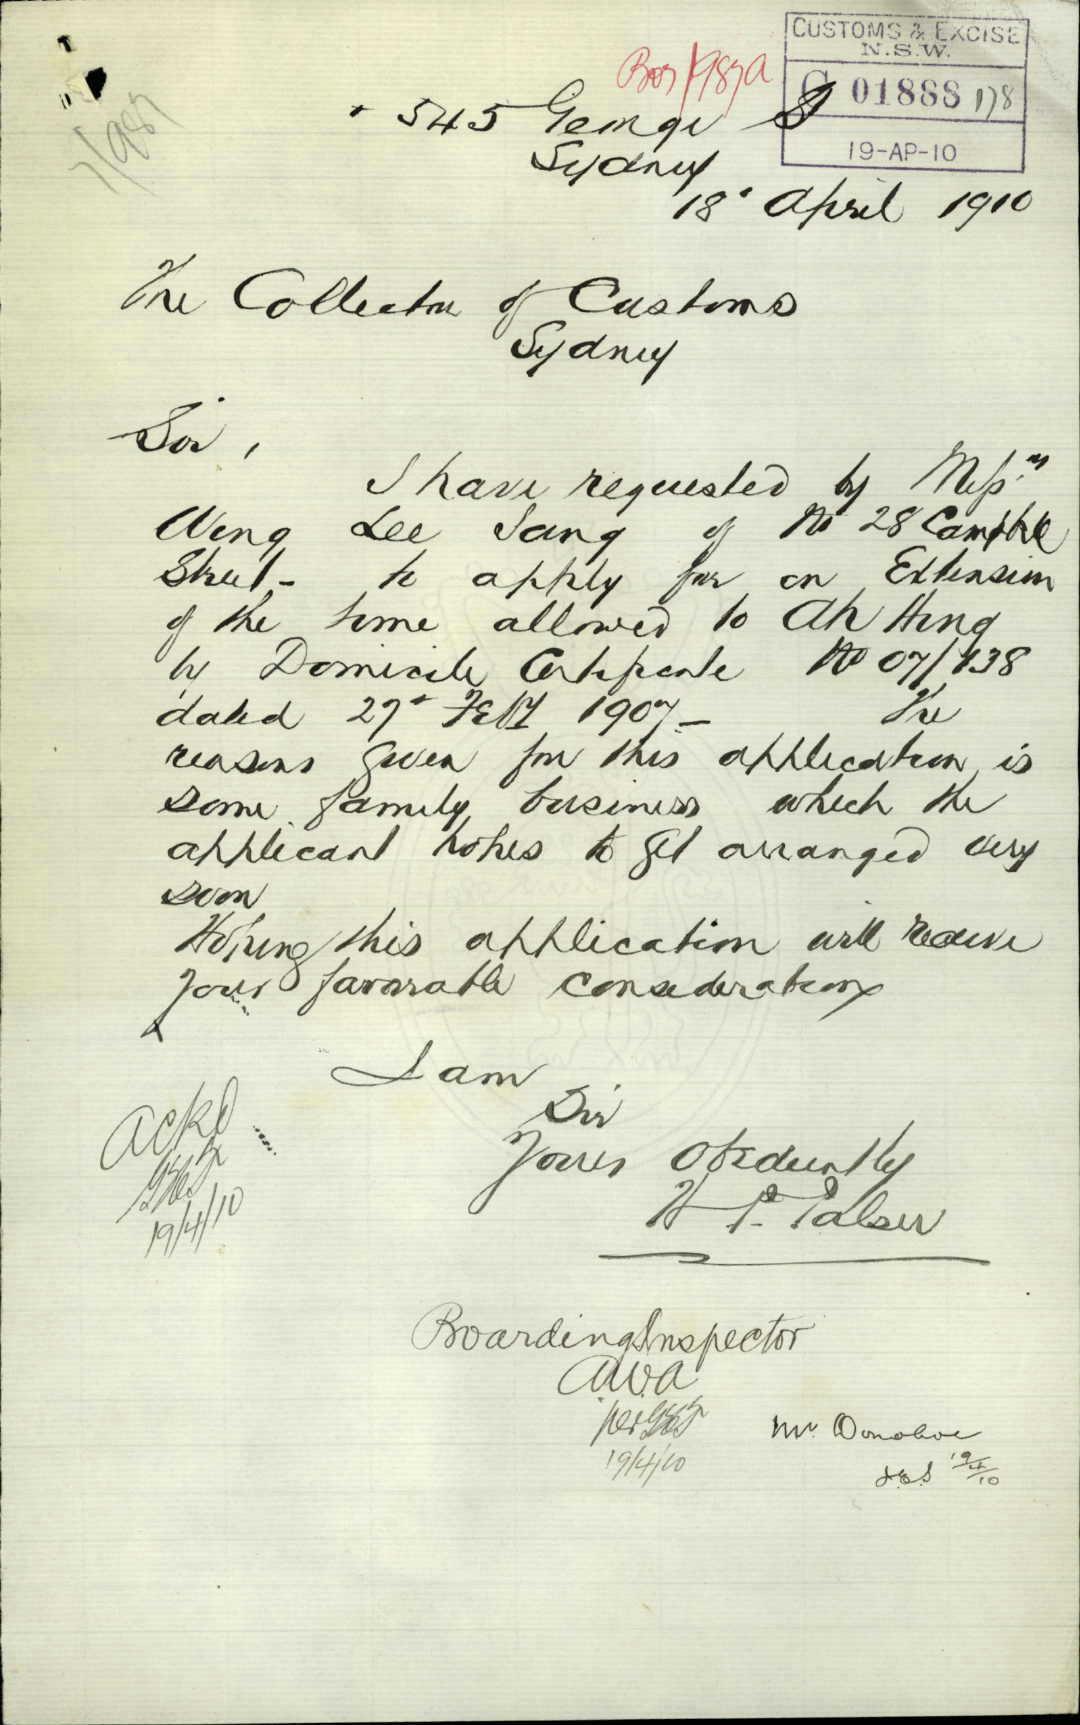 CUSTOMS & EXCISE
N.S.W.
C 01888 178
19-AP-10
545 George St
Sydney
18th April 1910
The Collector of Customs
Sydney
Sir,
I have requested by Messrs
Wing Lee Sang of No 28 Campbell
Street - to apply for an Extension
of the time allowed to Ah Hing
by Domicile Certificate No 07/138
dated 27th Feby 1907 - The
reasons given for this application is
some family business which the
applicant hopes to get arranged very
soon
Hoping this application will receive
your favorable consideration
I am
Sir
Yours Obediently
H P. Palser
Ackd
19/4/10
Boarding Inspector
19/4/10
Mr. Donohoe
19/4/10